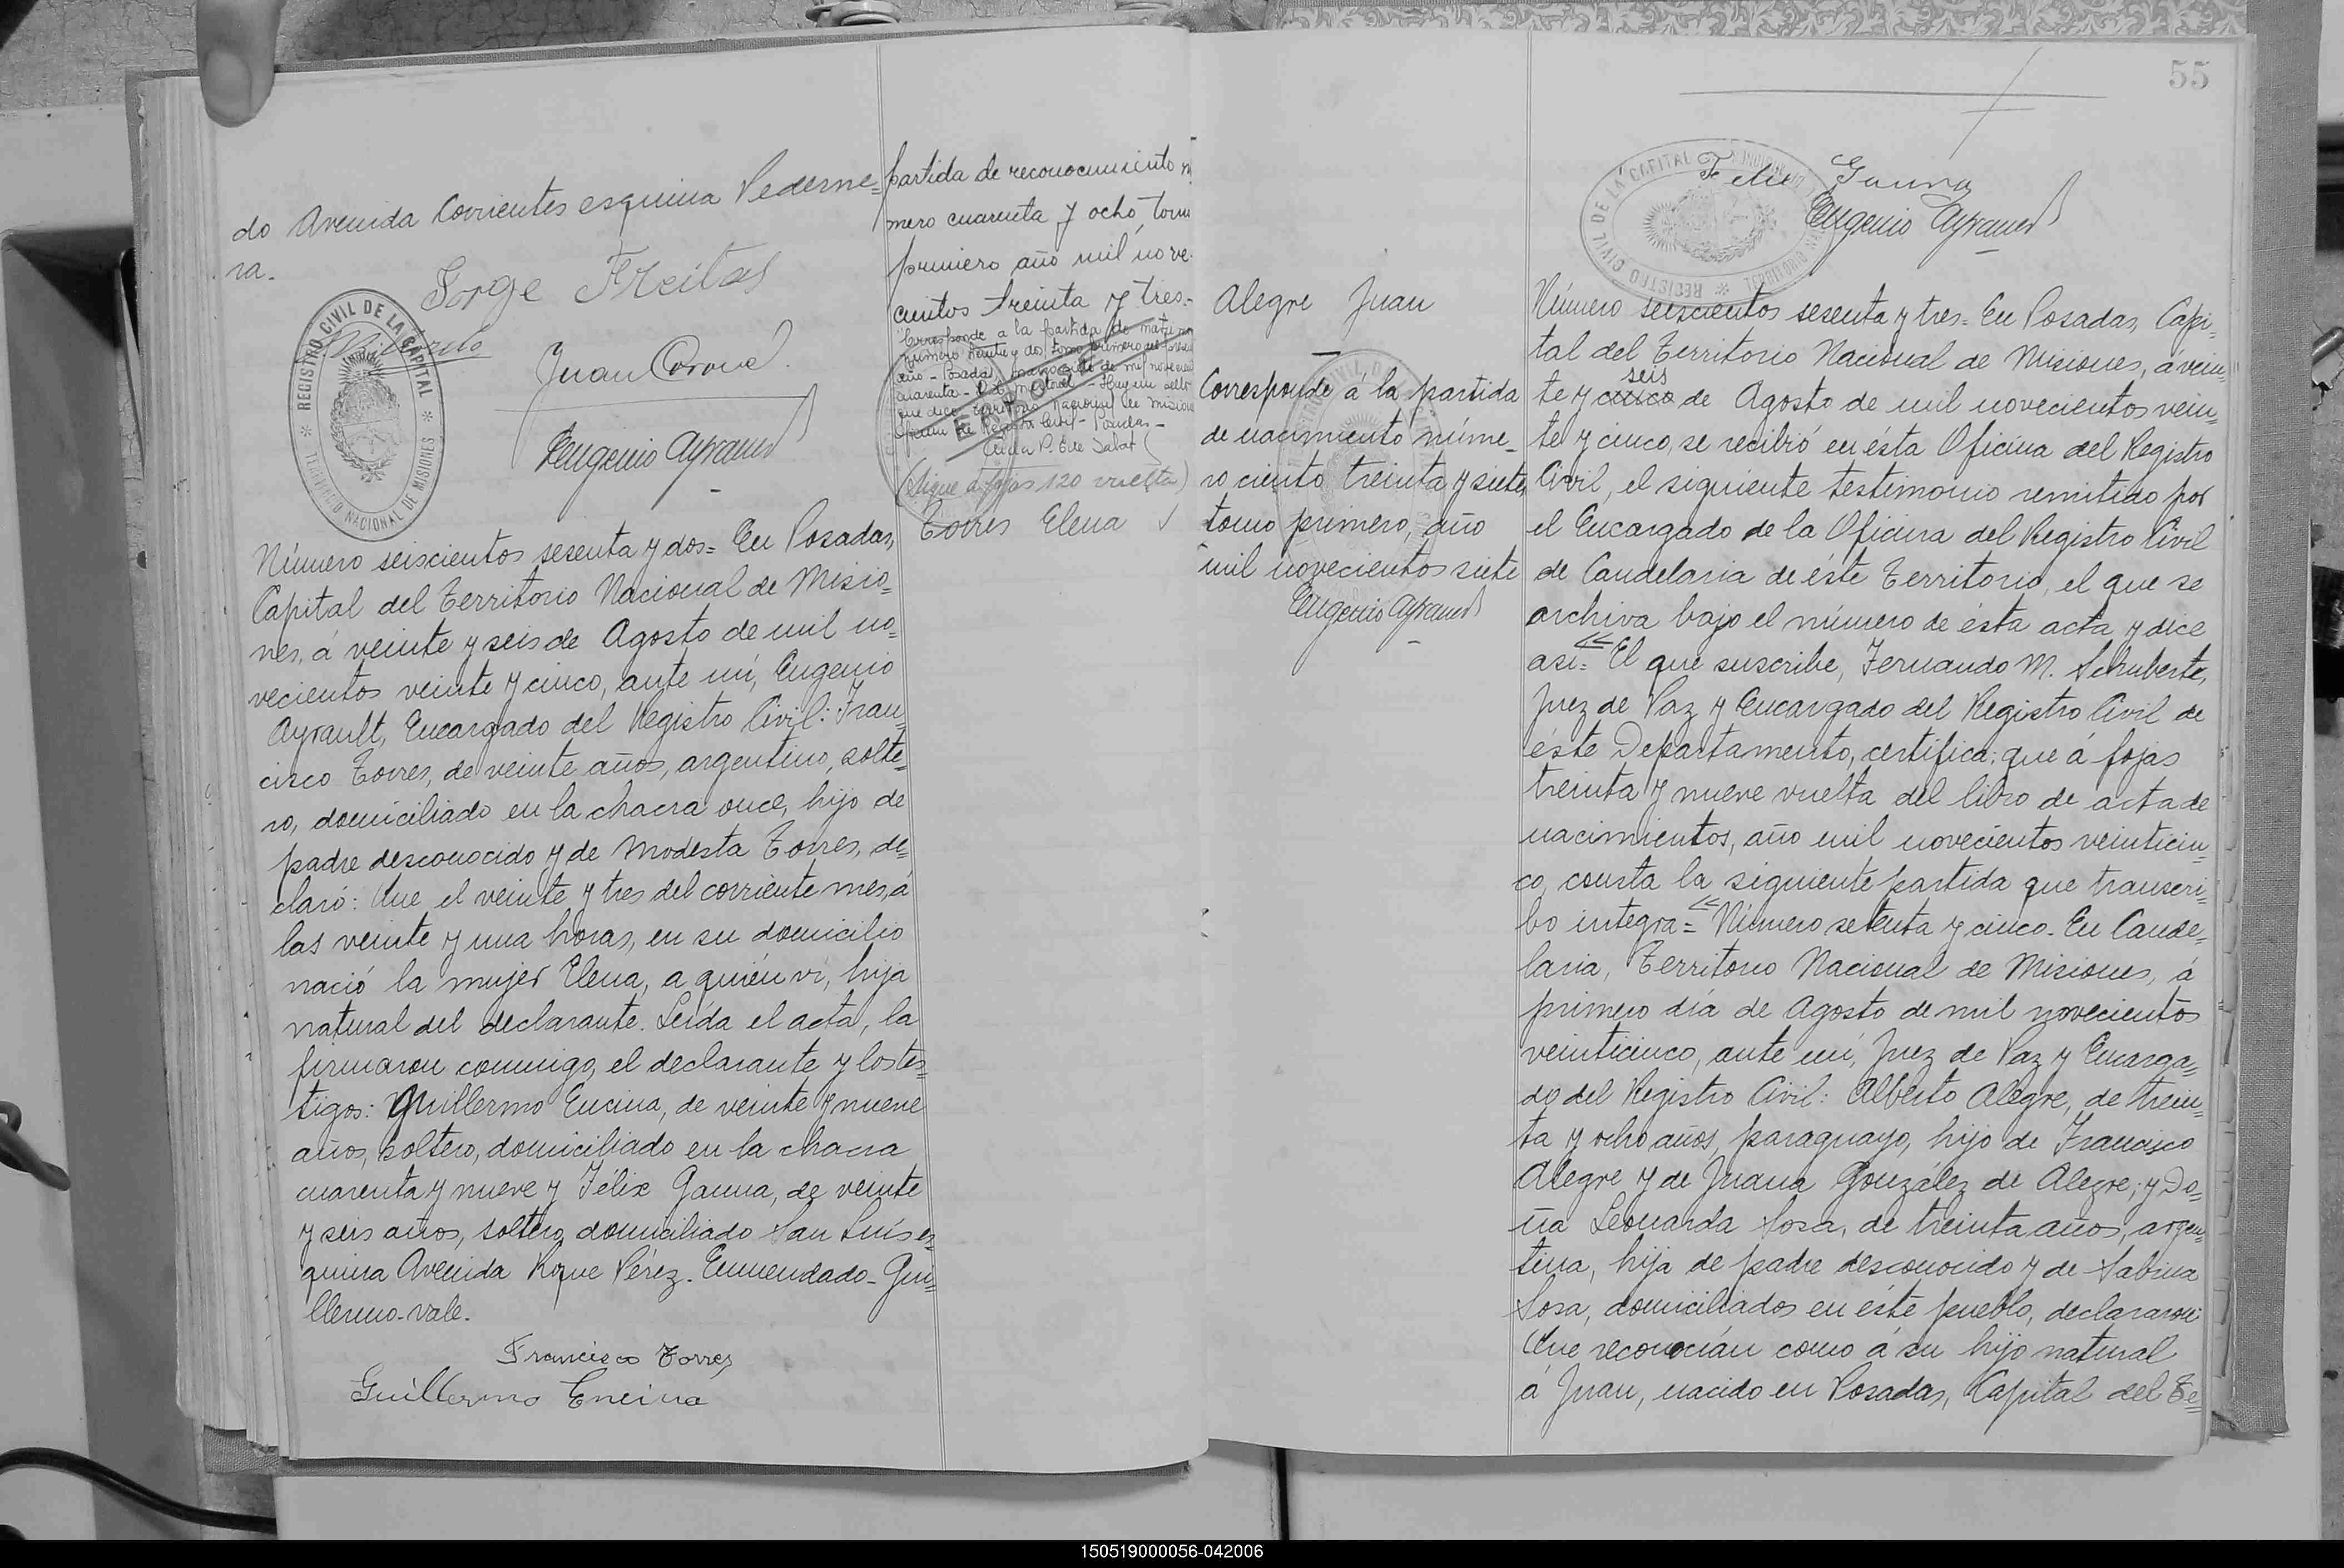 do Avenida Corrientes esquina Pederne=
ra.
Jorge Freitas
REGISTRO CIVIL DE LA CAPITAL
TERRITORIO NACIONAL DE MISIONES
Juan Corona
Eugenio Ayrault
Número seiscientos sesenta y dos= En Posadas,
Capital del Territorio Nacional de Misio=
nes, á veinte y seis de Agosto de mil no=
vecientos veinte y cinco, ante mí, Eugenio
Ayrault, Encargado del Registro Civil: Fran=
cisco Torres, de veinte años, argentino, solte=
ro, domiciliado en la chacra once, hijo de
padre desconocido y de Modesta Torres, de=
claró: Que el veinte y tres del corriente mes, á
las veinte y una horas, en su domicilio
nació la mujer Elena, a quién vi, hija
natural del declarante. Leída el acta, la
firmaron conmigo, el declarante y los tes=
tigos: Guillermo Encina, de veinte y nueve
años, soltero, domiciliado en la chacra
cuarenta y nueve y Félix Gauna, de veinte
y seis años, soltero, domiciliado San Luís es=
quina Avenida Roque Pérez. Enmendado- Gui=
llermo-vale.
Francisco Torres
Guillermo Encina
partida de reconocimiento n
mero cuarenta y ocho, tom
primero año mil nove-
cientos treinta y tres.-
Corresponde a la partida de
número treinta y dos tomo primero del
año - Posadas, de mil
cuarenta -
que dice: Territorio Nacional de Misiones
Registro Civil - Posadas -
(Sigue a fojas 120 vuelta)
Torres Elena
55
Felix Gauna
REGISTRO CIVIL DE LA CAPITAL
Eugenio Ayrault
Alegre Juan
Corresponde á la partida
de nacimiento núme-
ro ciento treinta y siete,
tomo primero, año
mil novecientos siete
Eugenio Ayrault
Número seiscientos sesenta y tres= En Posadas, Capi=
tal del Territorio Nacional de Misiones, á vein=
seis
te y cinco de Agosto de mil novecientos vein=
te y cinco, se recibió en ésta Oficina del Registro
Civil, el siguiente testimonio remitido por
el Encargado de la Oficina del Registro Civil
de Candelaria de éste Territorio, el que se
archiva bajo el número de ésta acta y dice
así= "El que suscribe, Fernando M. Schuberte,
Juez de Paz y Encargado del Registro Civil de
éste Departamento, certifica: que á fojas
treinta y nueve vuelta del libro de acta de
nacimientos, año mil novecientos veinticin=
co, consta la siguiente partida que transcri=
bo integra= "Número setenta y cinco. En Cande=
laria, Territorio Nacional de Misiones, á
primero día de Agosto de mil novecientos
veinticinco, ante mí, Juez de Paz y Encarga=
do del Registro Civil: Alberto Alegre, de trein=
ta y ocho años, paraguayo, hijo de Francisco
Alegre y de Juana González de Alegre; y Do=
ña Leonarda Sosa, de treinta años, argen=
tina, hija de padre desconocido y de Sabina
Sosa, domiciliados en éste pueblo, declararon:
Que reconocían como á su hijo natural
á Juan, nacido en Posadas, Capital del Te=
150519000056-042006